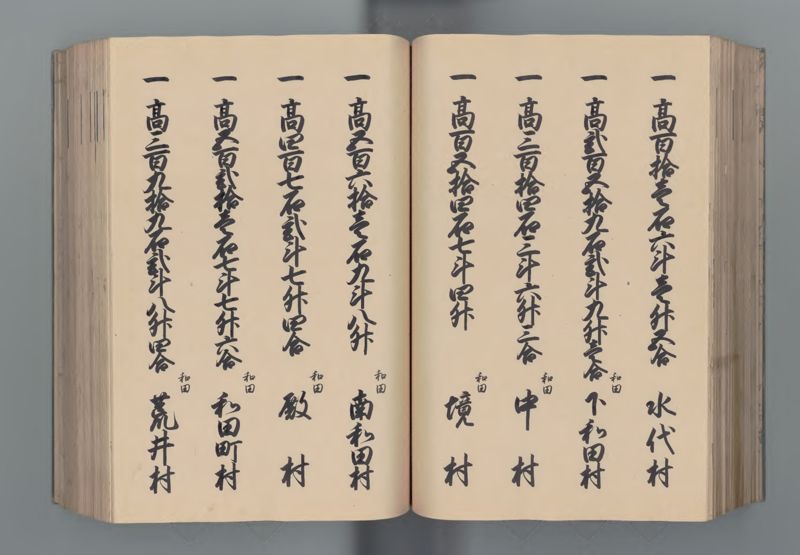 一 高百拾壱石六斗壱升五合 水代村
一 高弐百五拾九石弐斗九升壱合 和田 下和田村
一 高三百拾四石三斗六升三合 和田 中村
一 高百五拾四石七斗四升 和田 境村
一 高五百六拾壱石九斗八升 和田 南和田村
一 高四百七石弐斗七升四合 和田 殿村
一 高五百弐拾壱石七斗七升六合 和田 和田町村
一 高三百九拾九石弐斗八升四合 和田 荒井村